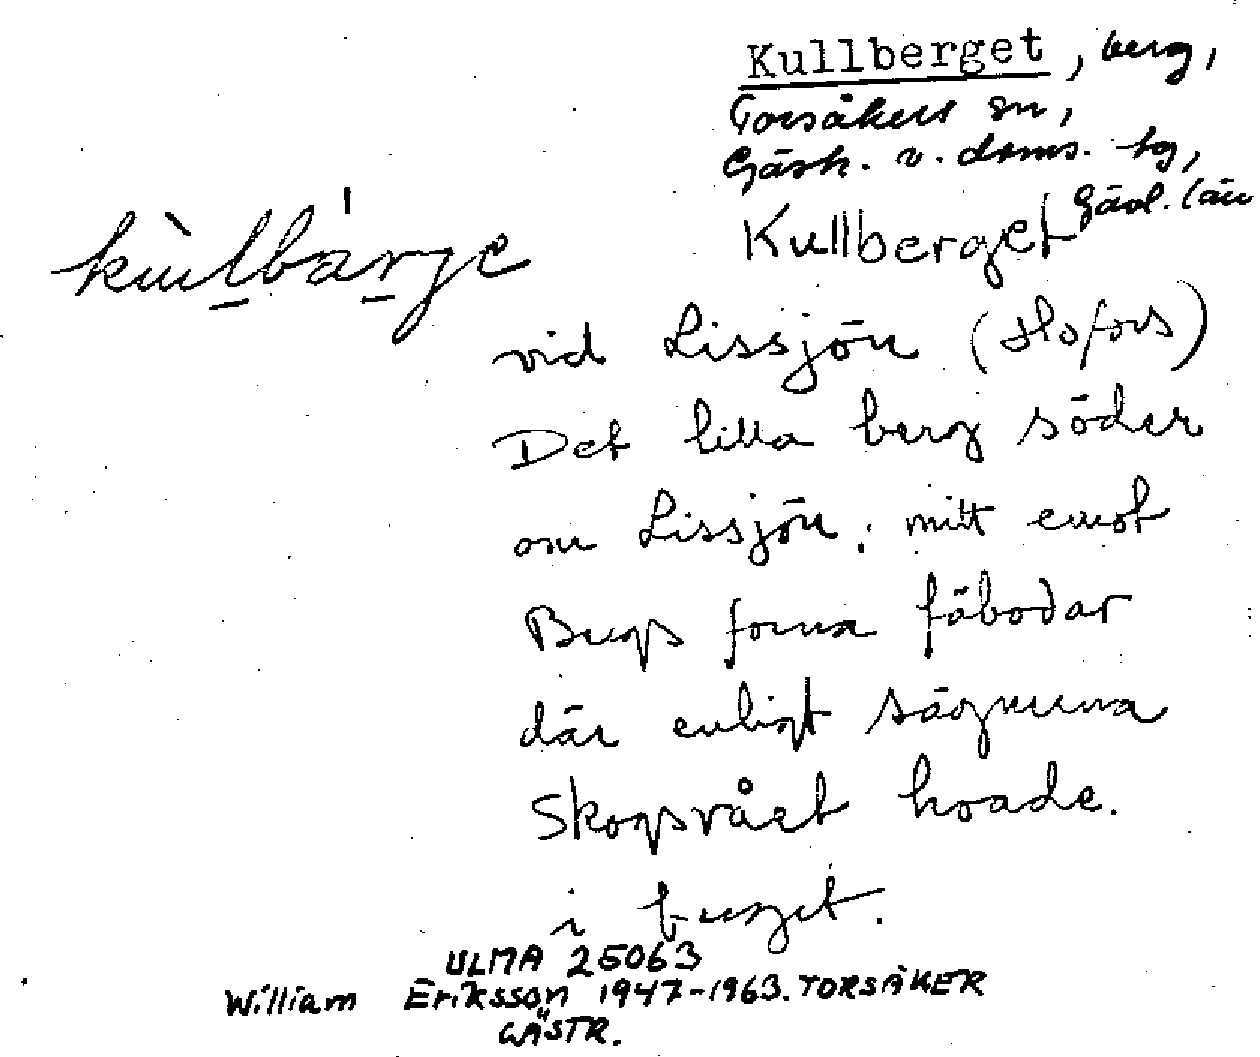 Kullberget, berg,
Torsåkers sn,
Gästr. v. doms. tg,
Gävl. län
kùlbárje
Kullberget
vid Lissjön (Hofors)
Det lilla berg söder
om Lissjön, mitt emot
Bergs forna fäbodar
där enligt sägnerna
Skogsrået hoade.
i berget.
ULMA 25063
William Eriksson 1947-1963. TORSÅKER
GÄSTR.